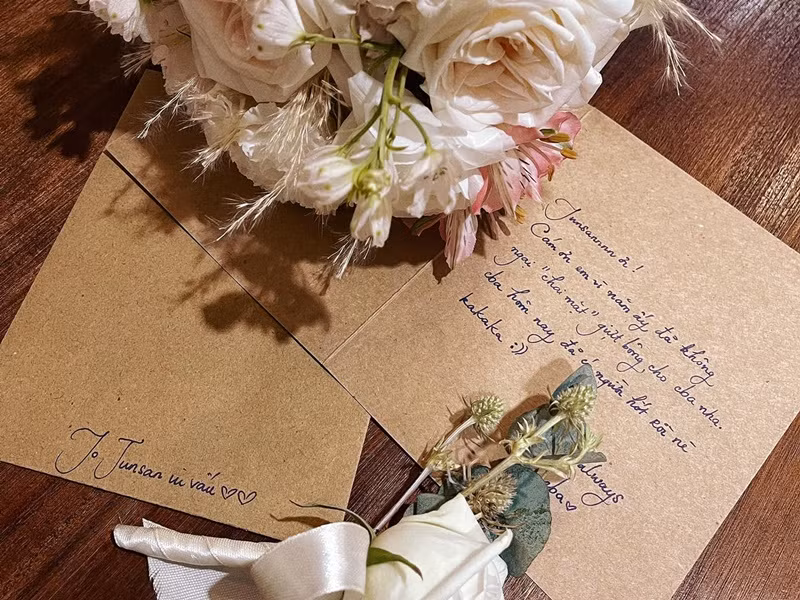 To Junsan iu vấu ♡♡
Junsannnn ơi!
Cám ơn em vì năm ấy đã không
ngại "chai mặt" giựt bông cho cba nha.
cba hôm nay đã có người hốt rồi nè
kakaka :))
always
cba ♡